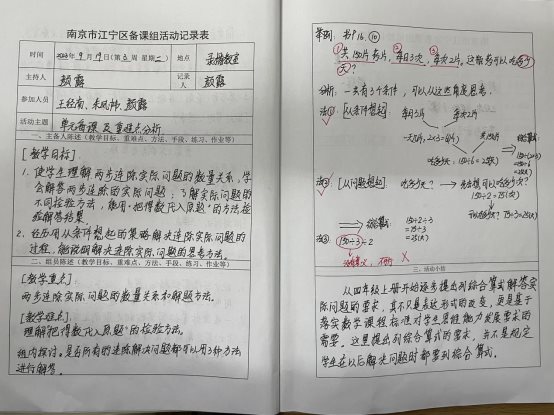 南京市江宁区备课组活动记录表
时间
2023年9月19日(第3周 星期二)
地点
录播教室
主持人
颜露
记录人
颜露
参加人员
颜露
活动主题
单元备课及重难点分析
一、主备人陈述(教学目标、重难点、方法、手段、练习、作业等)
[教学目标]
1. 使学生理解两步连除实际问题的数量关系,学
会解答两步连除的实际问题;了解实际问题的
不同检验方法,能用“把得数代入原题”的方法检
验解答结果。
2. 经历用从条件想起的策略解决连除实际问题的
过程,能说明解决连除实际问题的思考方法。
二、组员陈述(教学目标、重难点、方法、手段、练习、作业等)
[教学重点]
两步连除实际问题的数量关系和解题方法。
[教学难点]
理解“把得数代入原题”的检验方法。
组内探讨:是否所有的连除解决问题都可以用3种方法
进行解答。
举例:书P16. ⑩
①共150片药片,②每日3次,③每次2片。这瓶药可以吃多少
天?
分析:一共有3个条件,可以从这些角度思考:
法①:[从条件想起]
每日3片 每次2片
一天几片,2×3=6(片) 共150片
吃多少天,150÷6=25(天)
综合算式
150÷(2×3)
=150÷6
=25(天)
法②:[从问题想起]
吃多少天? → 先求瓶可以吃多少次?
150÷2=75(次)
可以吃多少天? 75÷3=25(天)
综合算式
150÷2÷3
=75÷3
=25(天)
法③:
(150÷3)÷2
没意义,不行 ×
三、活动小结
从四年级上册开始逐步提出列综合算式解答实
际问题的要求,真不只是表达形式的改变,更是基于
落实数学课程标准对学生思维能力发展要求的
需要。这里提出列综合算式的要求,并不是规定
学生在以后解决问题时都要列综合算式。